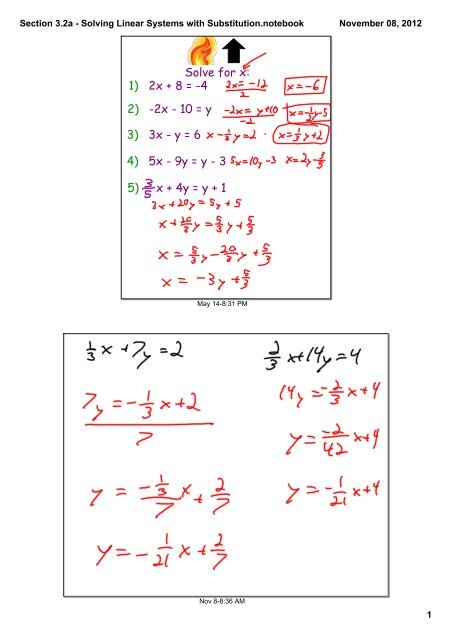 Section 3.2a - Solving Linear Systems with Substitution.notebook November 08, 2012
Solve for x:
1) 2x + 8 = -4 2x = -12 / 2 x = -6
2) -2x - 10 = y -2x = y+10 / -2 x = -1/2 y - 5
3) 3x - y = 6 x - 1/3 y = 2 . x = 1/3 y + 2
4) 5x - 9y = y - 3 5x = 10y - 3 x = 2y - 3/5
5) 3/5 x + 4y = y + 1
3x + 20y = 5y + 5
x + 20/3 y = 5/3 y + 5/3
x = 5/3 y - 20/3 y + 5/3
x = -3y + 5/3
May 14-8:31 PM
1/3 x + 7y = 2 2/3 x + 14y = 4
7y = -1/3 x + 2 14y = -2/3 x + 4
7
y = -2/42 x + 4
y = -1/3 / 7 x + 2/7 y = -1/21 x + 4
y = -1/21 x + 2/7
Nov 8-8:36 AM
1